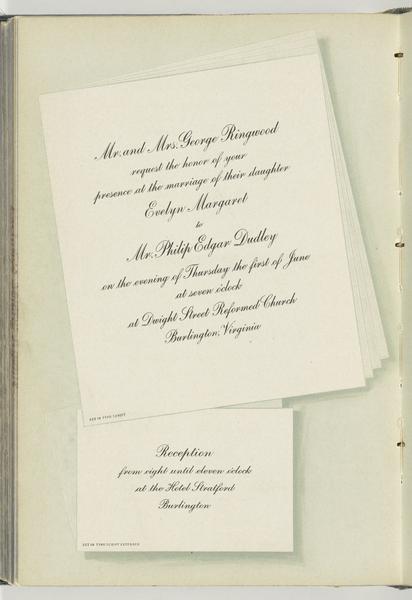 Mr. and Mrs. George Ringwood
request the honor of your
presence at the marriage of their daughter
Evelyn Margaret
to
Mr. Philip Edgar Dudley
on the evening of Thursday the first of June
at seven o'clock
at Dwight Street Reformed Church
Burlington, Virginia
SET IN TYPO
Reception
from eight until eleven o'clock
at the Hotel Stratford
Burlington
SET IN TYPO SCRIPT EXTENDED